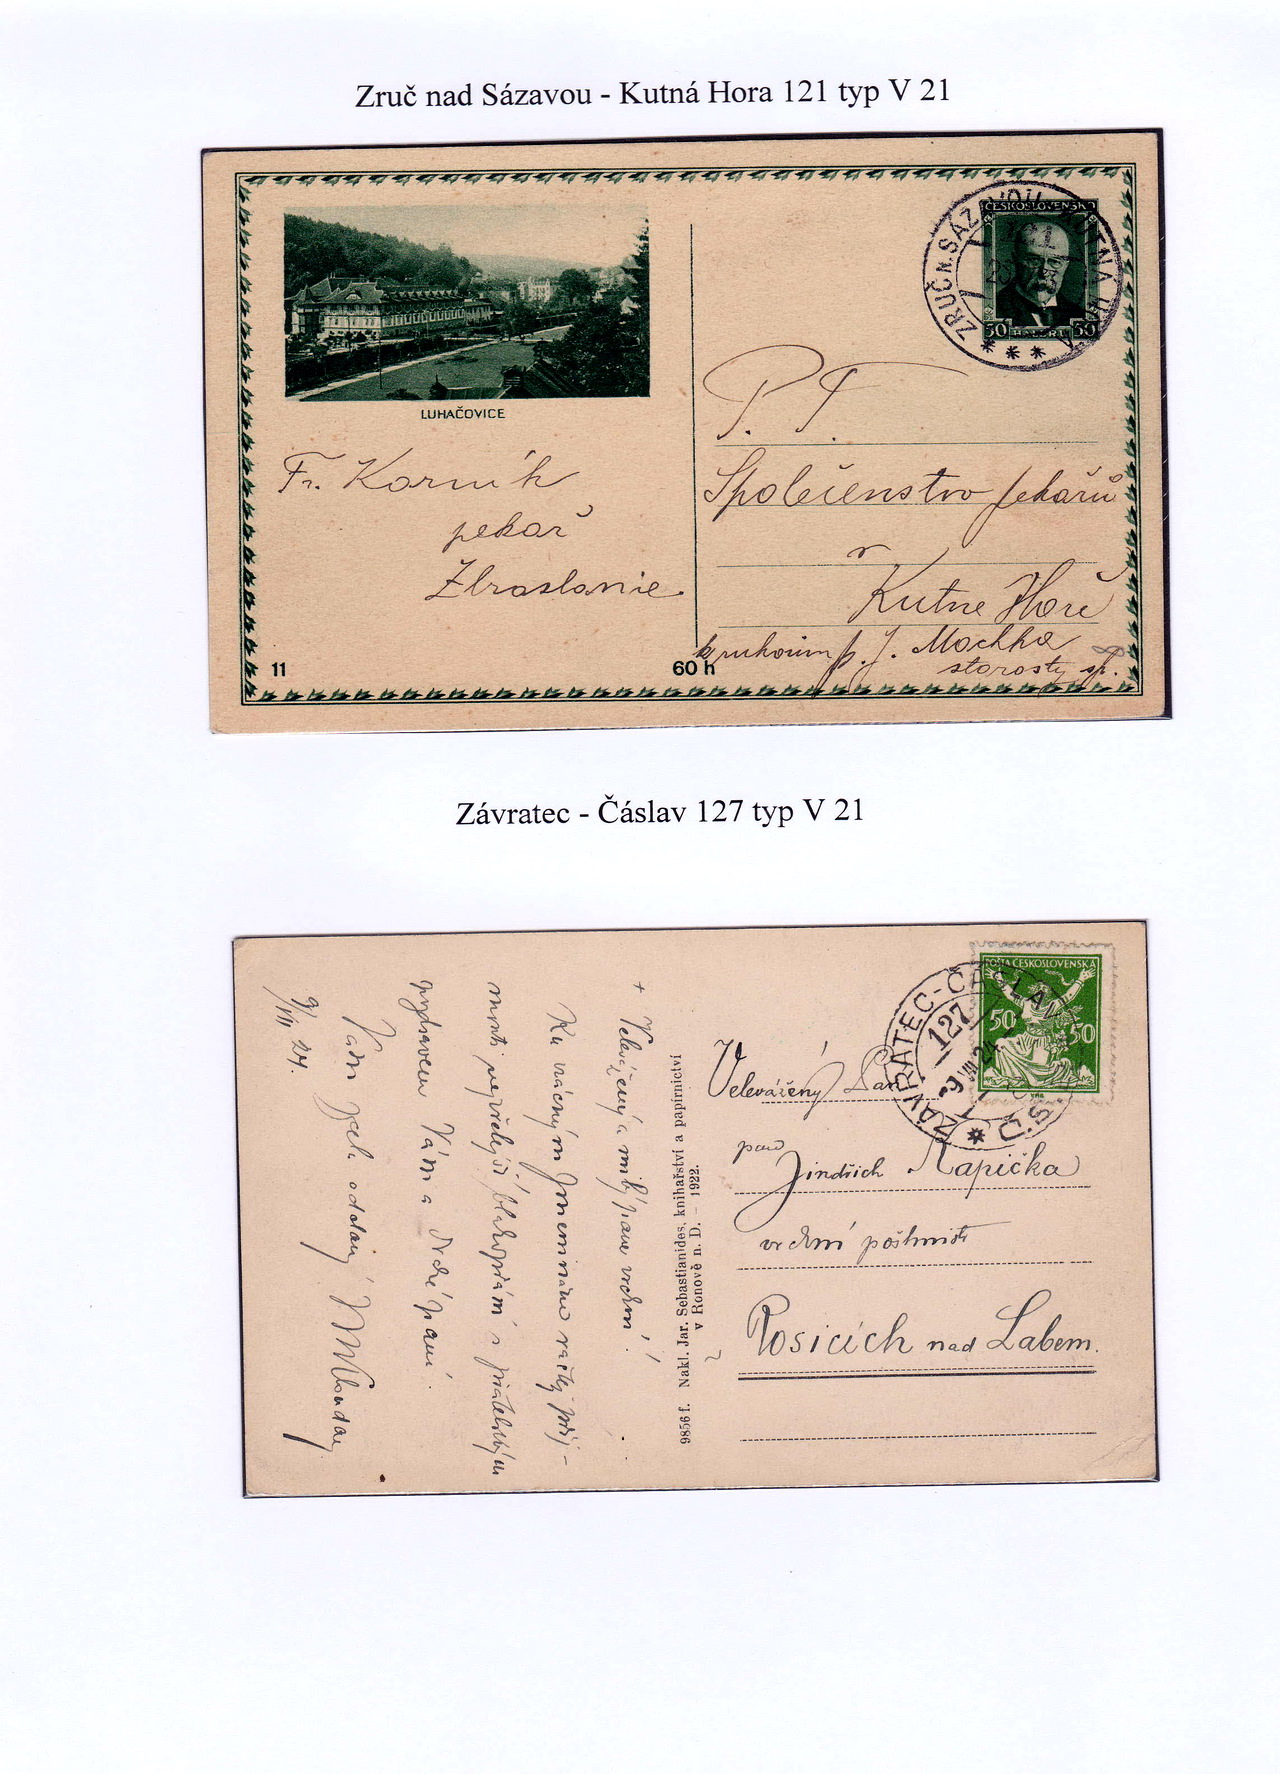 Zruč nad Sázavou - Kutná Hora 121 typ V 21
ČESKOSLOVENSKO
ZRUČ N. SÁZAVOU-KUTNÁ HORA
121
50 HALÉŘŮ 50
LUHAČOVICE
P. T.
Společenstvo pekařů
v
Kutné Hoře
k rukoum p. J. Mochka
starosty sp.
Fr. Korník
pekař
Zbraslavie.
11
60 h
Závratec - Čáslav 127 typ V 21
POŠTA ČESKOSLOVENSKÁ
50 50
ZÁVRATEC-ČÁSLAV
127
9 VIII 24
Č.S.P.
Velevážený Pan
pan
Jindřich Kapička
vrchní poštmistr
Rosicích nad Labem.
9856 f. Nakl. Jar. Sebastianides, knihařství a papírnictví
v Ronově n. D. – 1922.
+ Velevážený a milý pane vrchní!
Ku vzácným Jmeninám račtež při-
pozdravem Vám a drahé paní.
Vám oddaný
9/VIII 24.